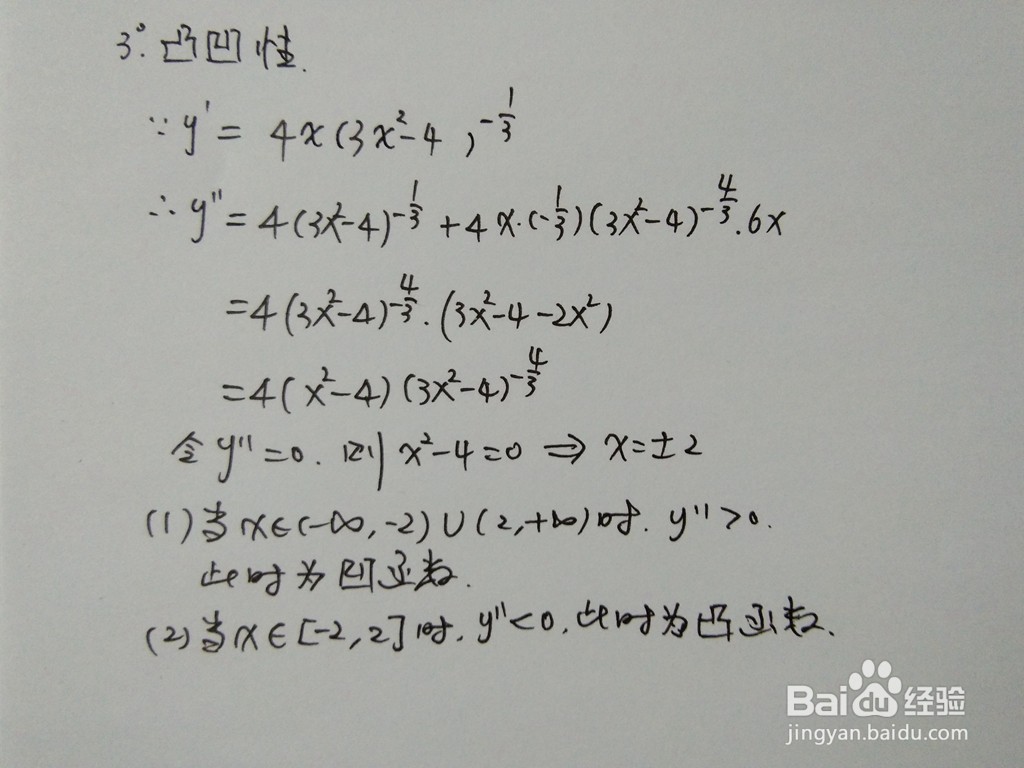 3°. 凸凹性.
∵ y' = 4x(3x²-4)^{-1/3}
∴ y'' = 4(3x²-4)^{-1/3} + 4x·(-1/3)(3x²-4)^{-4/3}·6x
=4(3x²-4)^{-4/3}·(3x²-4-2x²)
=4(x²-4)(3x²-4)^{-4/3}
令 y''=0. 则 x²-4=0 ⇒ x=±2
(1)当x∈(-∞,-2)∪(2,+∞)时. y''>0.
此时为凹函数.
(2)当x∈[-2,2]时, y''<0, 此时为凸函数.
Baidu经验
jingyan.baidu.com